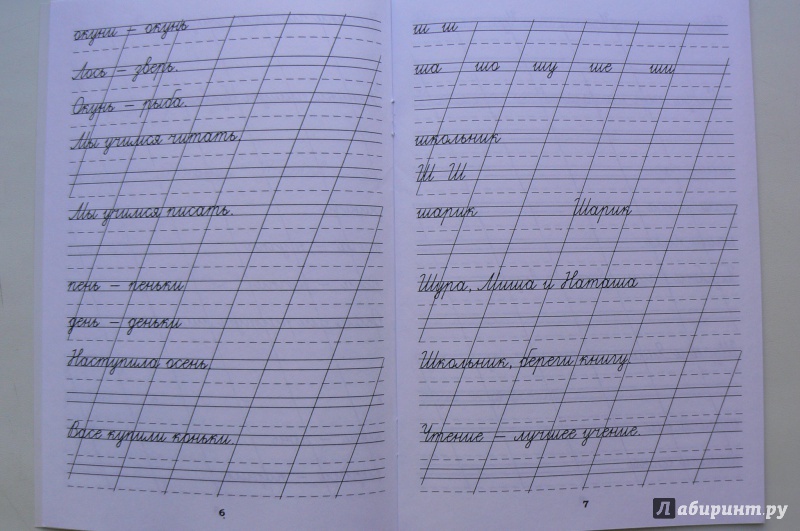 окуни – окунь
Лось – зверь.
Окунь – рыба.
Мы учимся читать.
Мы учимся писать.
пень – пеньки
день – деньки
Наступила осень.
Васе купили коньки.
6
ш ш
ша шо шу ше ши
школьник
Ш Ш
шарик Шарик
Шура, Миша и Наташа
Школьник, береги книгу.
Чтение – лучшее учение.
7
Лабиринт.ру